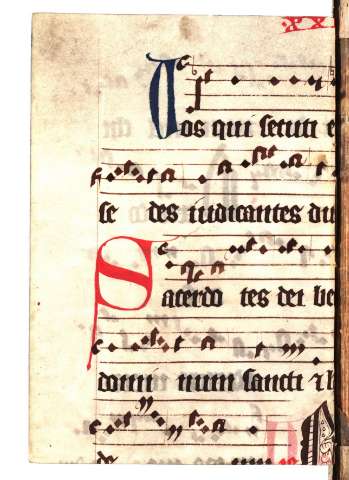 xx
Vos qui secuti e
se des iudicantes du
Sacerdo tes dei be
domi num sancti & h
de